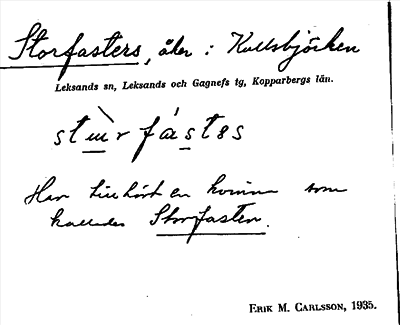 Storfasters, åker i Kullsbjörken
Leksands sn, Leksands och Gagnefs tg, Kopparbergs län.
Har tillhört en kvinna som
kallades Storfasten.
ERIK M. CARLSSON, 1935.